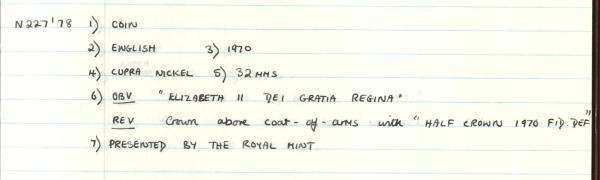 N227'78 1) COIN
2) ENGLISH 3) 1970
4) CUPRA NICKEL 5) 32 MMS
6) OBV "ELIZABETH II DEI GRATIA REGINA"
REV Crown above coat-of-arms with "HALF CROWN 1970 FID. DEF"
7) PRESENTED BY THE ROYAL MINT